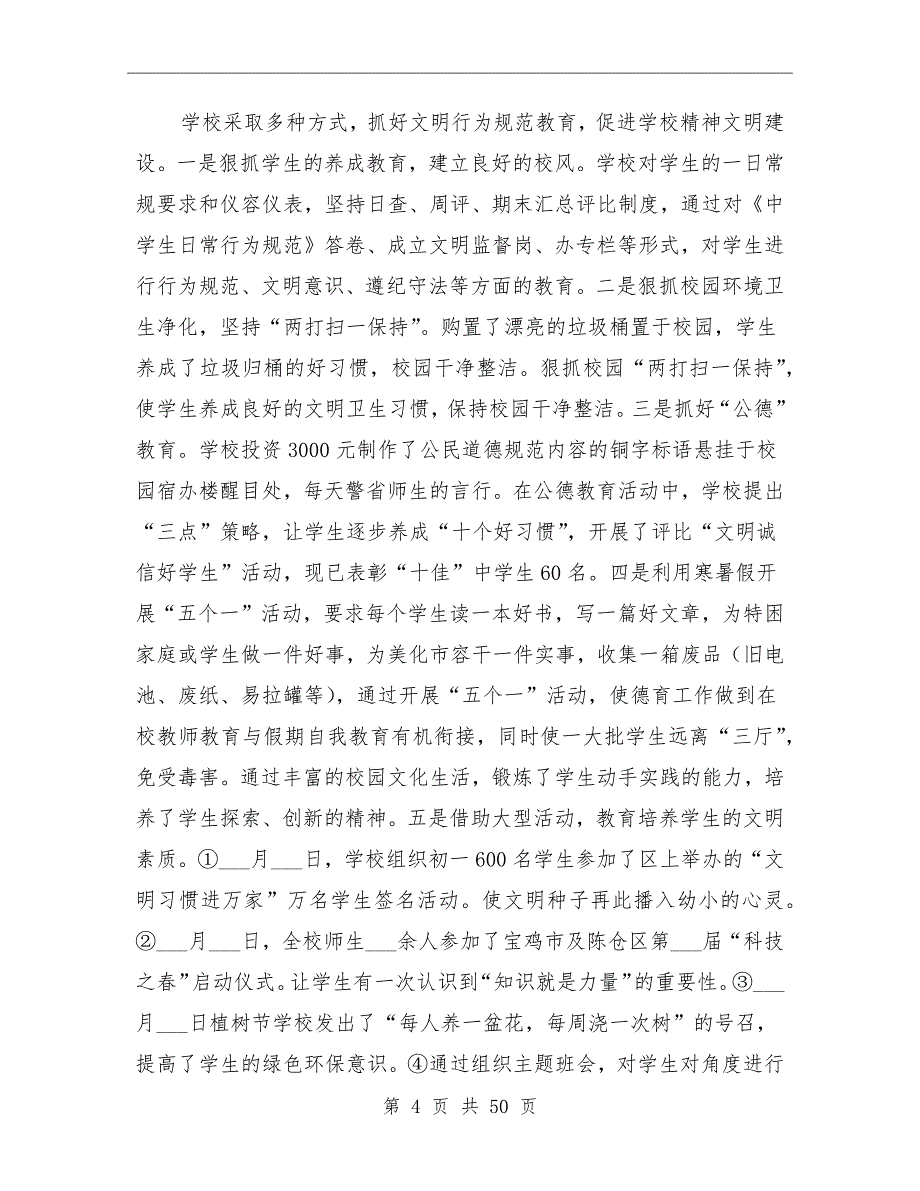 学校采取多种方式，抓好文明行为规范教育，促进学校精神文明建
设。一是狠抓学生的养成教育，建立良好的校风。学校对学生的一日常
规要求和仪容仪表，坚持日查、周评、期末汇总评比制度，通过对《中
学生日常行为规范》答卷、成立文明监督岗、办专栏等形式，对学生进
行行为规范、文明意识、遵纪守法等方面的教育。二是狠抓校园环境卫
生净化，坚持“两打扫一保持”。购置了漂亮的垃圾桶置于校园，学生
养成了垃圾归桶的好习惯，校园干净整洁。狠抓校园“两打扫一保持”，
使学生养成良好的文明卫生习惯，保持校园干净整洁。三是抓好“公德”
教育。学校投资 3000 元制作了公民道德规范内容的铜字标语悬挂于校
园宿办楼醒目处，每天警省师生的言行。在公德教育活动中，学校提出
“三点”策略，让学生逐步养成“十个好习惯”，开展了评比“文明诚
信好学生”活动，现已表彰“十佳”中学生 60 名。四是利用寒暑假开
展“五个一”活动，要求每个学生读一本好书，写一篇好文章，为特困
家庭或学生做一件好事，为美化市容干一件实事，收集一箱废品（旧电
池、废纸、易拉罐等），通过开展“五个一”活动，使德育工作做到在
校教师教育与假期自我教育有机衔接，同时使一大批学生远离“三厅”，
免受毒害。通过丰富的校园文化生活，锻炼了学生动手实践的能力，培
养了学生探索、创新的精神。五是借助大型活动，教育培养学生的文明
素质。①___月___日，学校组织初一 600 名学生参加了区上举办的“文
明习惯进万家”万名学生签名活动。使文明种子再此播入幼小的心灵。
②___月___日，全校师生___余人参加了宝鸡市及陈仓区第___届“科技
之春”启动仪式。让学生有一次认识到“知识就是力量”的重要性。③___
月___日植树节学校发出了“每人养一盆花，每周浇一次树”的号召，
提高了学生的绿色环保意识。④通过组织主题班会，对学生对角度进行
第 4 页 共 50 页